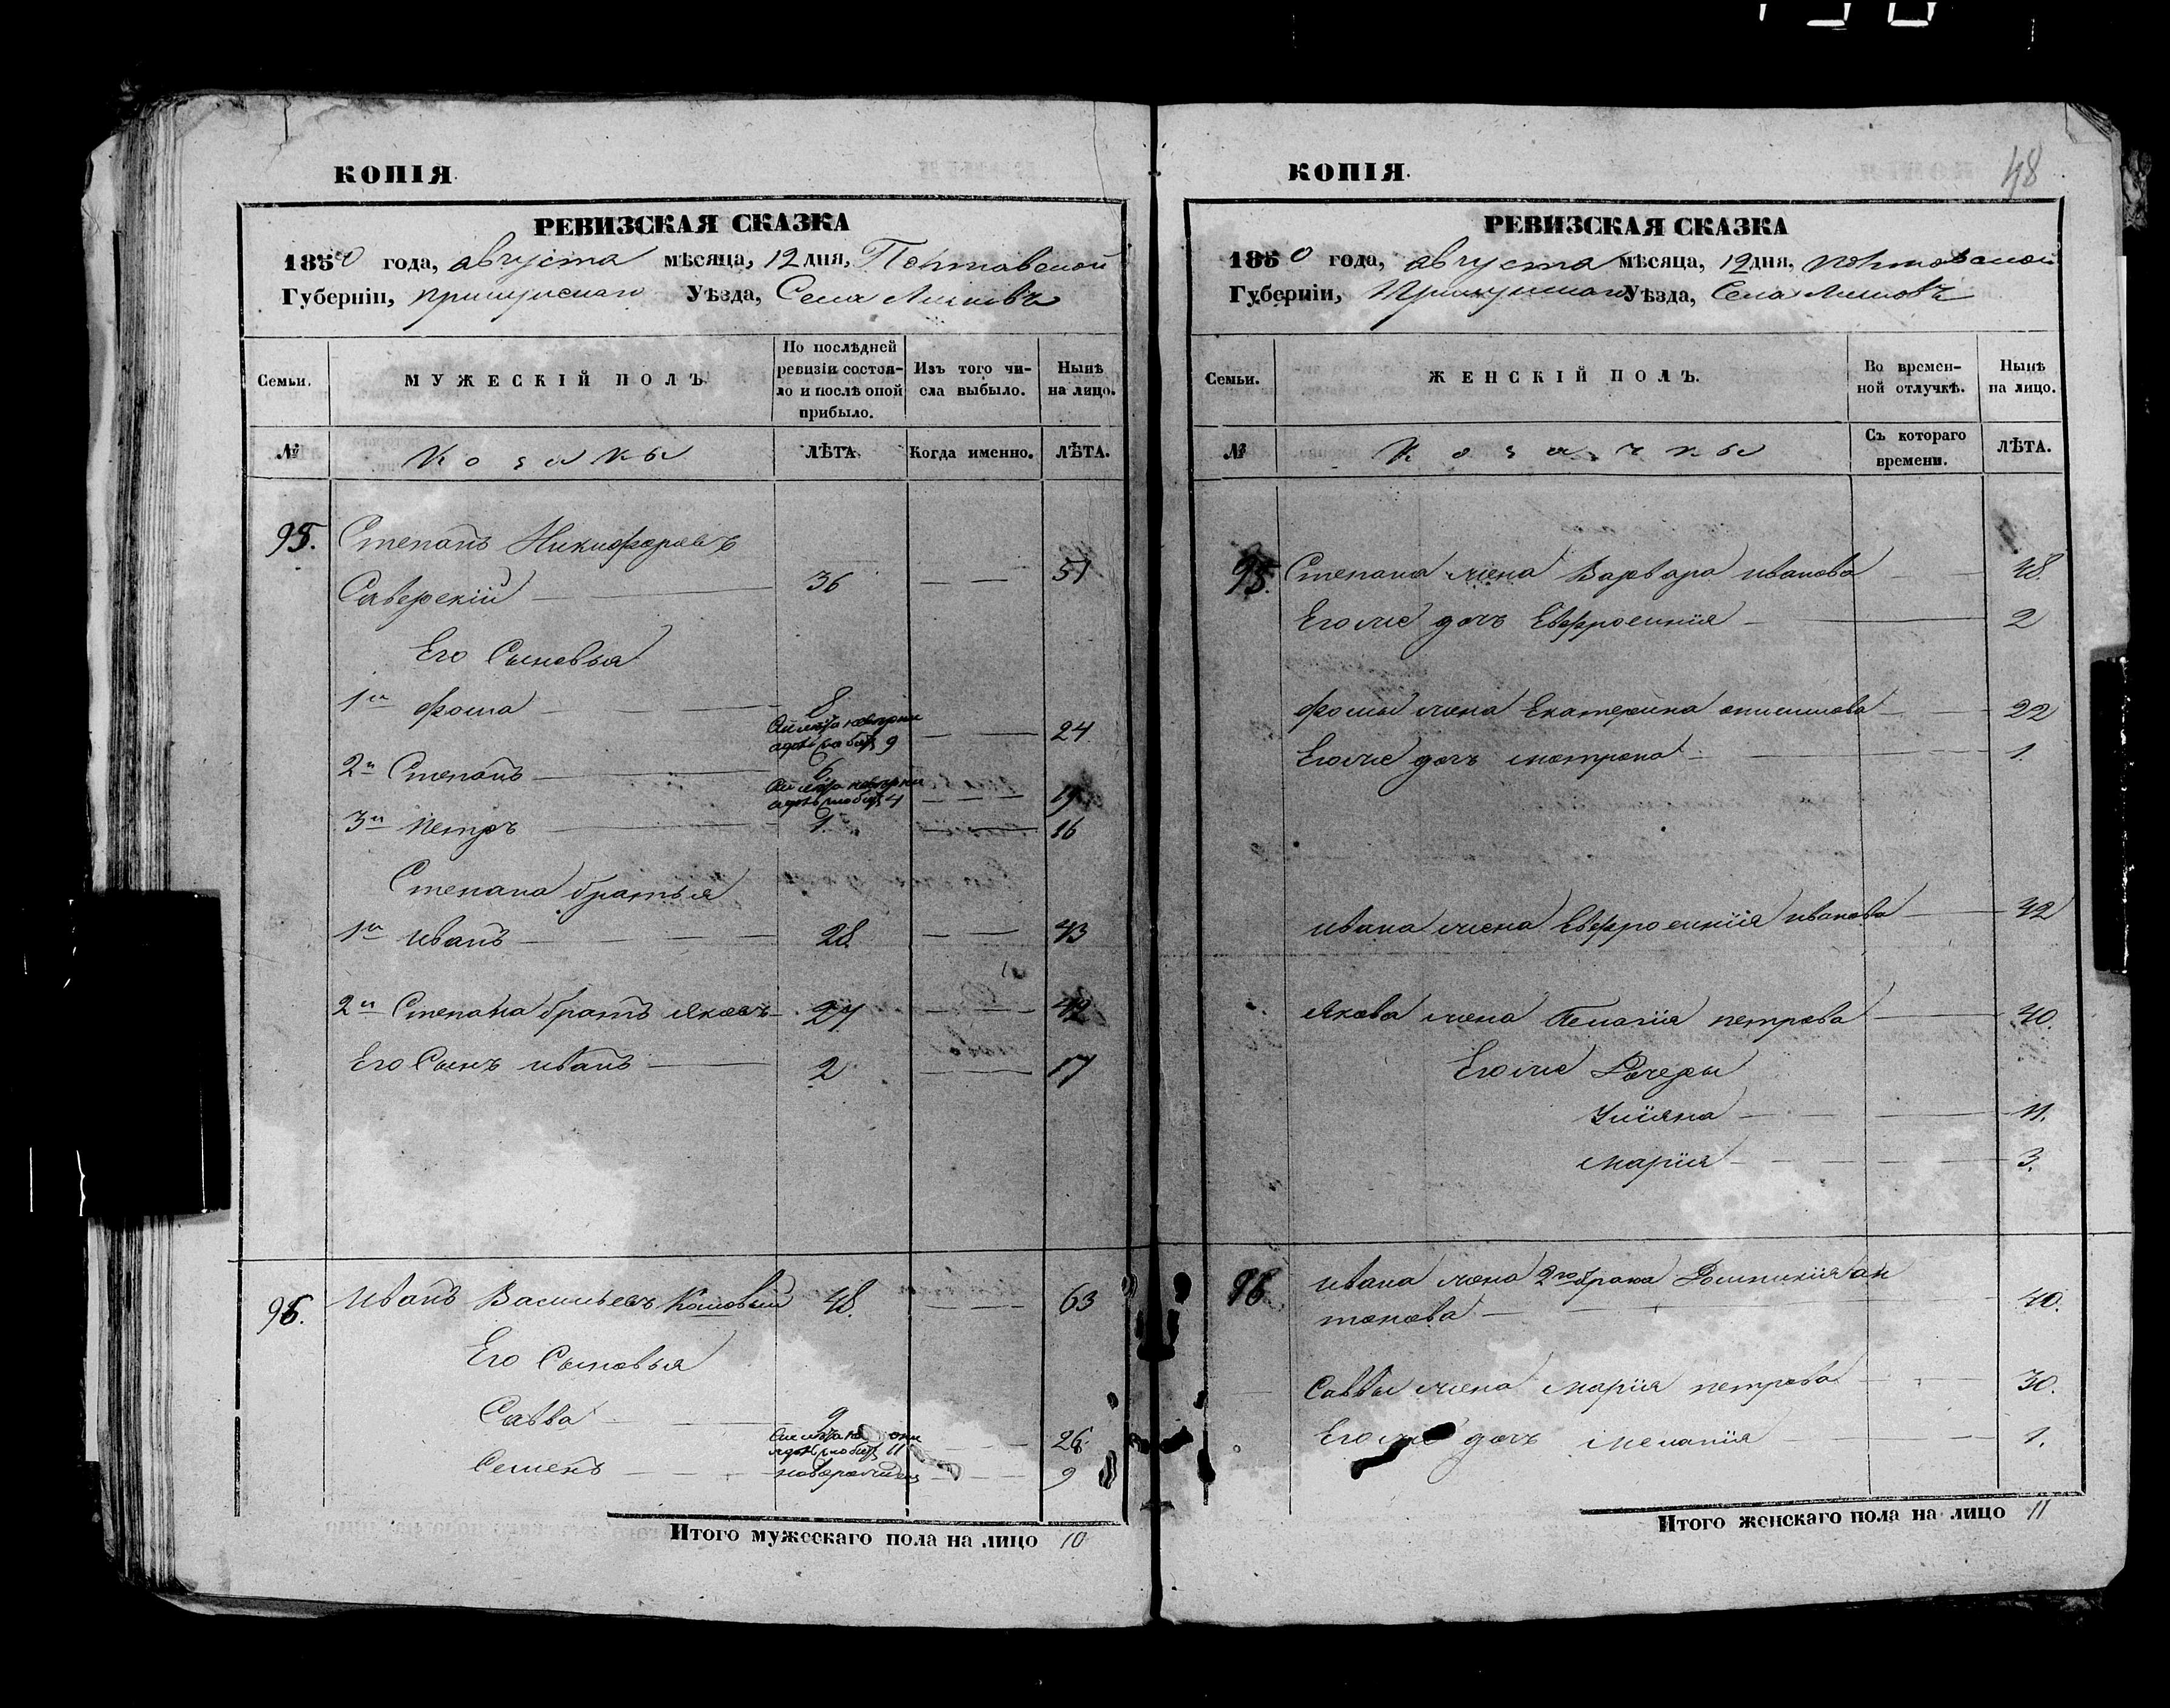 КОПІЯ.
РЕВИЗСКАЯ СКАЗКА
1850 года, августа мѣсяца, 12 дня, Полтавской
Губерніи, Прилуцкаго Уѣзда, Села
Семьи.
МУЖЕСКІЙ ПОЛЪ.
По послѣдней ревизіи состоя-
ло и послѣ оной прибыло.
Изъ того чи-
сла выбыло.
Нынѣ
на лицо.
№
Козаки
ЛѢТА.
Когда именно.
ЛѢТА.
95. Степанъ Никифоровъ
Саверскій 36 — — 51
Его Сыновья
1й Фома 8
9 — — 24
2й Степанъ 6
4 — — — 19
3й Петръ 1. — 16
Степана братья
1й Иванъ 28 — — 43
2й Степана братъ Яковъ 27 — — 42
Его Сынъ Иванъ 2 — — 17
96. Иванъ Васильевъ 48. — — 63
Его Сыновья
Савва 9
11 — — 26
Семенъ новорожденъ — — — 9
Итого мужескаго пола на лицо 10
КОПІЯ.
48
РЕВИЗСКАЯ СКАЗКА
1850 года, августа мѣсяца, 12 дня, Полтавской
Губерніи, Прилуцкаго Уѣзда, Села
Семьи.
ЖЕНСКІЙ ПОЛЪ.
Во времен-
ной отлучкѣ.
Нынѣ
на лицо.
№
Козачки
Съ котораго
времени.
ЛѢТА.
95. Степана жена Варвара Иванова 48.
Его же дочь Евфросинія 2
Фомы жена Екатерина Онисимова 22
Его же дочь Матрона 1.
Ивана жена Евфросинія Иванова 42
Якова жена Пелагія Петрова 40.
Его же Дочери
Уліяна 11.
Марія 3.
96 Ивана жена 2го брака Домникія Ан
тонова 40.
Саввы жена Марія Петрова 30.
Его же дочь Меланія 1.
Итого женскаго пола на лицо 11